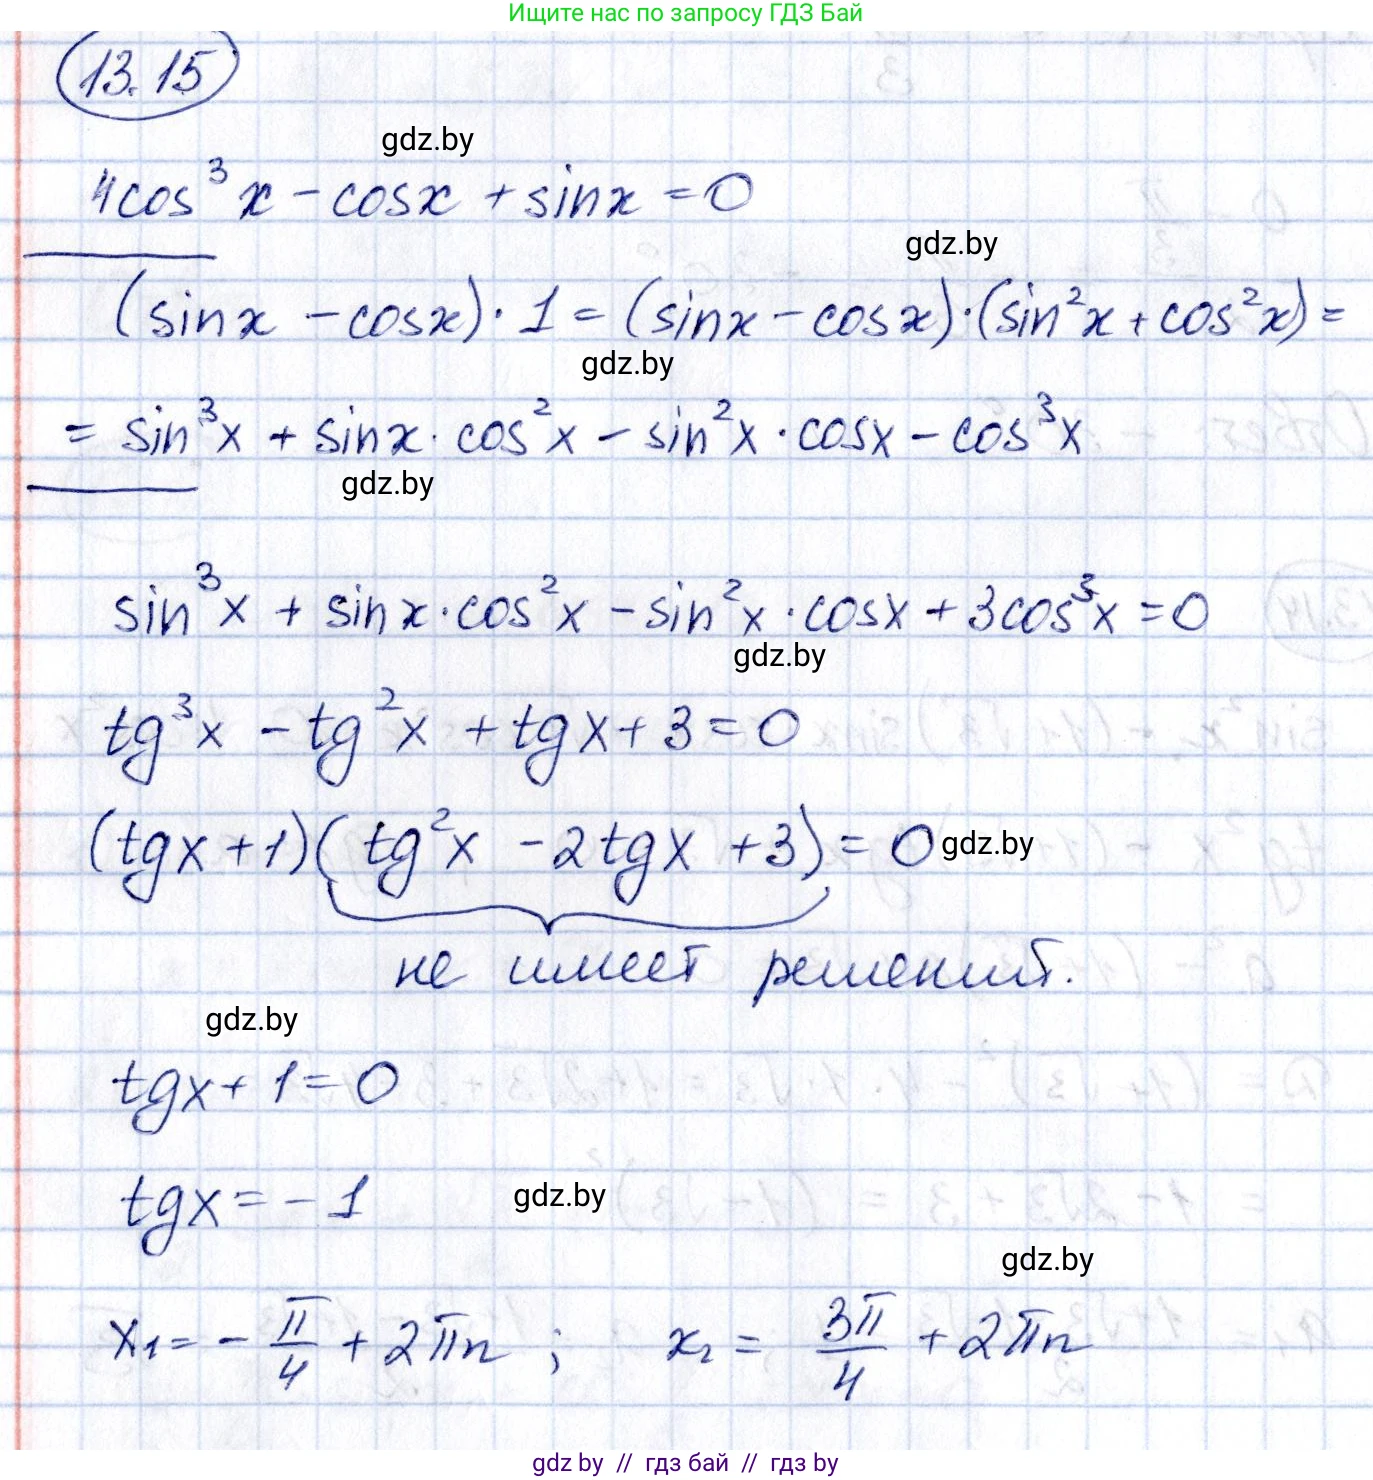 Ищите нас по запросу ГДЗ Бай
13.15
gdz.by
4cos³x - cosx + sinx = 0
gdz.by
(sinx - cosx) · 1 = (sinx - cosx) · (sin²x + cos²x) =
gdz.by
= sin³x + sinx · cos²x - sin²x · cosx - cos³x
gdz.by
sin³x + sinx · cos²x - sin²x · cosx + 3cos³x = 0
gdz.by
tg³x - tg²x + tgx + 3 = 0
(tgx + 1)(tg²x - 2tgx + 3) = 0 gdz.by
не имеет решений.
gdz.by
tgx + 1 = 0
tgx = - 1 gdz.by
gdz.by
x₁ = - π/4 + 2πn ; x₂ = 3π/4 + 2πn
gdz by // гдз бай // гдз by